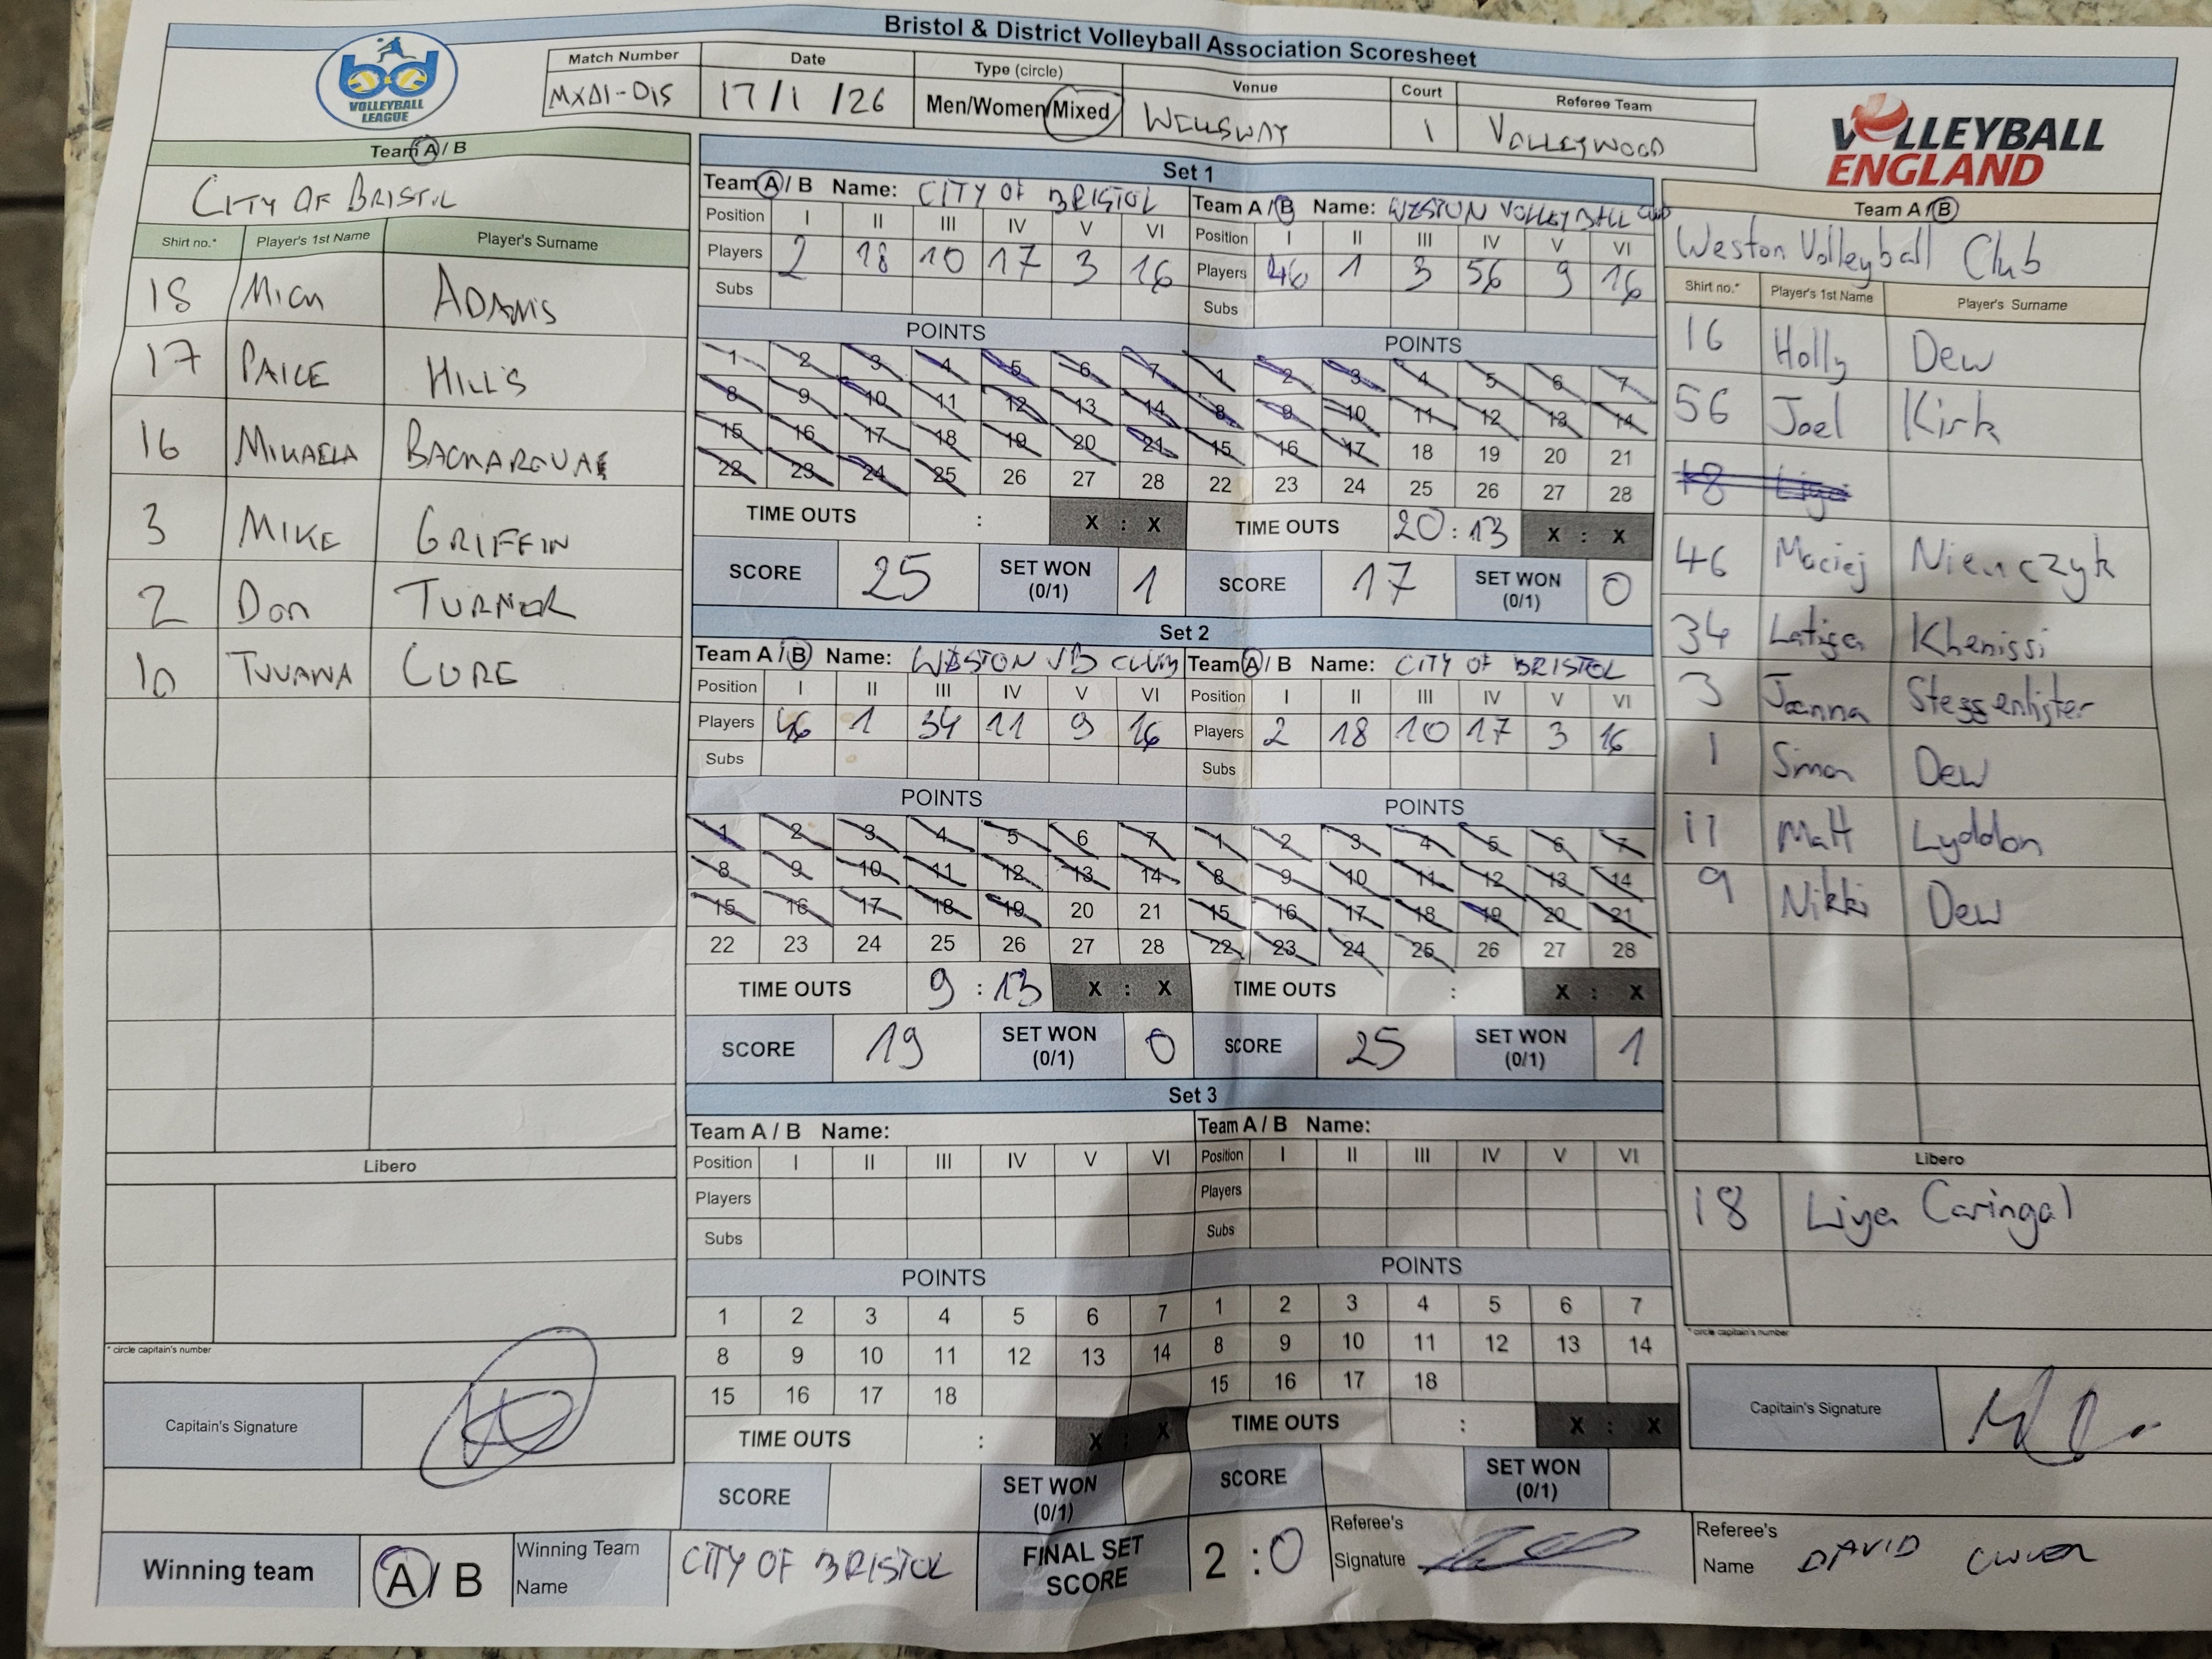 Bristol & District Volleyball Association Scoresheet
bd
VOLLEYBALL
LEAGUE
Match Number
Date
Type (circle)
Venue
Court
Referee Team
MXD1-D15
17/1/26
Men/Women/Mixed
WELLSWAY
1
VOLLEYWOOD
VOLLEYBALL
ENGLAND
Team A / B
CITY OF BRISTOL
Shirt no.* Player's 1st Name Player's Surname
18 ADAMS
17 PAIGE HILLS
16 MIKAELA
3 MIKE GRIFFIN
2 Don TURNER
10
Libero
* circle capitain's number
Capitain's Signature
Set 1
Team A / B Name: CITY OF BRISTOL
Position I II III IV V VI
Players 2 18 10 17 3 16
Subs
POINTS
1 2 3 4 5 6 7
8 9 10 11 12 13 14
15 16 17 18 19 20 21
22 23 24 25 26 27 28
TIME OUTS : X : X
SCORE 25 SET WON (0/1) 1
Team A / B Name: WESTON VOLLEYBALL CLUB
Position I II III IV V VI
Players 46 1 3 56 9 16
Subs
POINTS
1 2 3 4 5 6 7
8 9 10 11 12 13 14
15 16 17 18 19 20 21
22 23 24 25 26 27 28
TIME OUTS 20 : 13 X : X
SCORE 17 SET WON (0/1) 0
Set 2
Team A / B Name: WESTON VB CLUB
Position I II III IV V VI
Players 46 1 34 11 9 16
Subs
POINTS
1 2 3 4 5 6 7
8 9 10 11 12 13 14
15 16 17 18 19 20 21
22 23 24 25 26 27 28
TIME OUTS 9 : 13 X : X
SCORE 19 SET WON (0/1) 0
Team A / B Name: CITY OF BRISTOL
Position I II III IV V VI
Players 2 18 10 17 3 16
Subs
POINTS
1 2 3 4 5 6 7
8 9 10 11 12 13 14
15 16 17 18 19 20 21
22 23 24 25 26 27 28
TIME OUTS : X : X
SCORE 25 SET WON (0/1) 1
Set 3
Team A / B Name:
Position I II III IV V VI
Players
Subs
POINTS
1 2 3 4 5 6 7
8 9 10 11 12 13 14
15 16 17 18
TIME OUTS : X : X
SCORE SET WON (0/1)
Team A / B Name:
Position I II III IV V VI
Players
Subs
POINTS
1 2 3 4 5 6 7
8 9 10 11 12 13 14
15 16 17 18
TIME OUTS : X : X
SCORE SET WON (0/1)
Team A / B
Weston Volleyball Club
Shirt no.* Player's 1st Name Player's Surname
16 Holly Dew
56 Joel Kirk
18 Liya
46 Maciej Niemczyk
34 Khenissi
3 Joanna
1 Simon Dew
11 Matt Lyddon
9 Nikki Dew
Libero
18 Liya Caringal
* circle capitain's number
Capitain's Signature
Winning team A / B
Winning Team Name CITY OF BRISTOL
FINAL SET SCORE 2 : 0
Referee's Signature
Referee's Name DAVID